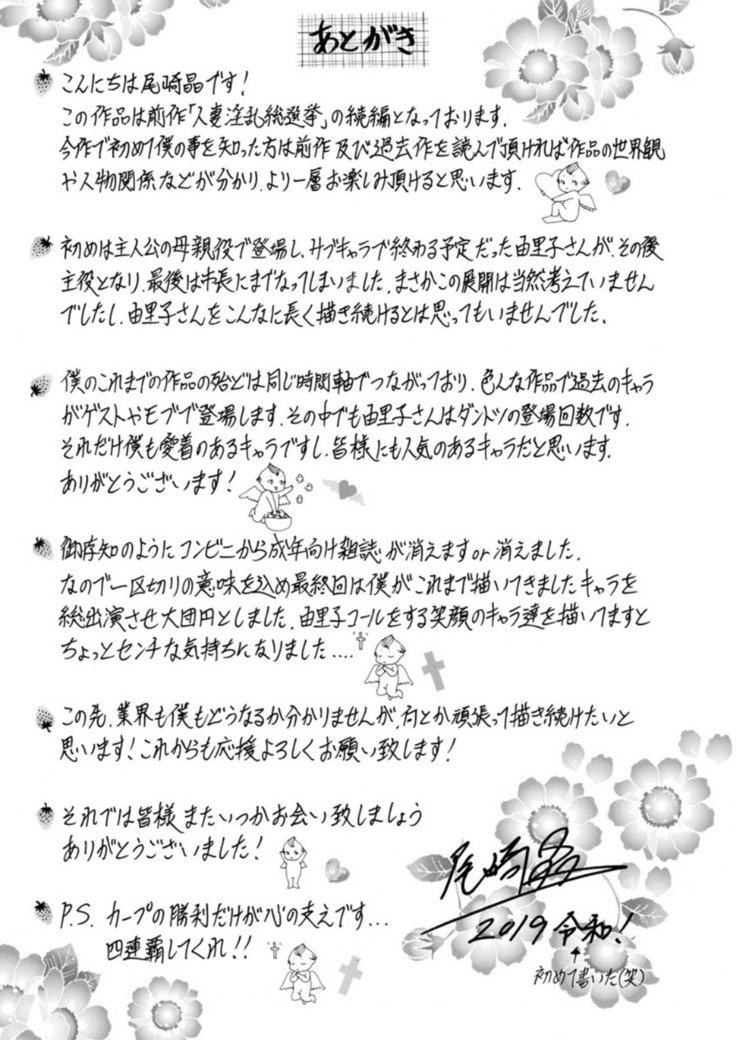 あとがき
こんにちは尾崎晶です!
この作品は前作「人妻淫乱総選挙」の続編となっております.
今作で初めて僕の事を知った方は前作及び過去作を読んで頂ければ作品の世界観
や人物関係などが分かり.より一層お楽しみ頂けると思います.
初めは主人公の母親役で登場し、サブキャラで終わる予定だった由里子さんが、その後
主役となり、最後は市長にまでなってしまいました.まさかこの展開は当然考えていません
でしたし.由里子さんをこんなに長く描き続けるとは思ってもいませんでした.
僕のこれまでの作品の殆どは同じ時間軸でつながっており.色んな作品で過去のキャラ
がゲストやモブで登場します.その中でも由里子さんはダントツの登場回数です.
それだけ僕も愛着のあるキャラですし、皆様にも人気のあるキャラだと思います.
ありがとうございます!
御存知のようにコンビニから成年向け雑誌が消えますor消えました.
なので一区切りの意味を込め最終回は僕がこれまで描いてきましたキャラを
総出演させ大団円としました.由里子コールをする笑顔のキャラ達を描いてますと
ちょっとセンチな気持ちになりました....
この先.業界も僕もどうなるか分かりませんが、何とか頑張って描き続けたいと
思います!これからも応援よろしくお願い致します!
それでは皆様またいつかお会い致しましょう
ありがとうございました!
P.S. カープの勝利だけが心の支えです...
四連覇してくれ!!
尾崎晶
2019令和!
↑
初めて書いた(笑)